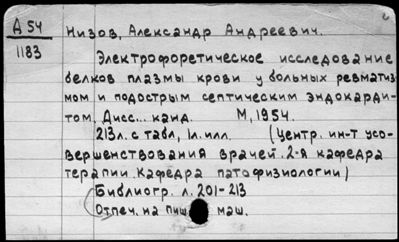 А 54
1183
Низов, Александр Андреевич.
Электрофоретическое исследование
белков плазмы крови у больных ревматиз-
мом и подострым септическим эндокарди-
том. Дисс... канд. М, 1954.
213 л. с табл, 1 л. илл. (Центр. ин-т усо-
вершенствования врачей. 2-я кафедра
терапии. Кафедра патофизиологии)
Библиогр. л. 201-213
Отпеч. на пиш. маш.